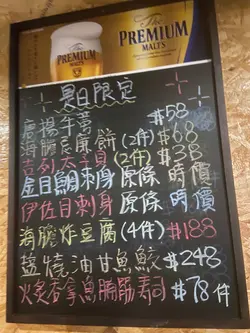 The
PREMIUM
MALT'S
The
PREMIUM
MALT'S
是日限定
唐揚牛蒡 $58
海膽豆腐餅(2件) $68
吉列太子魚(2件) $38
金目鯛刺身 原條 時價
伊佐目刺身 原條 時價
海膽炸豆腐(4件) $188
鹽燒油甘魚鮫 $248
火炙吞拿魚腩筋寿司 $78件